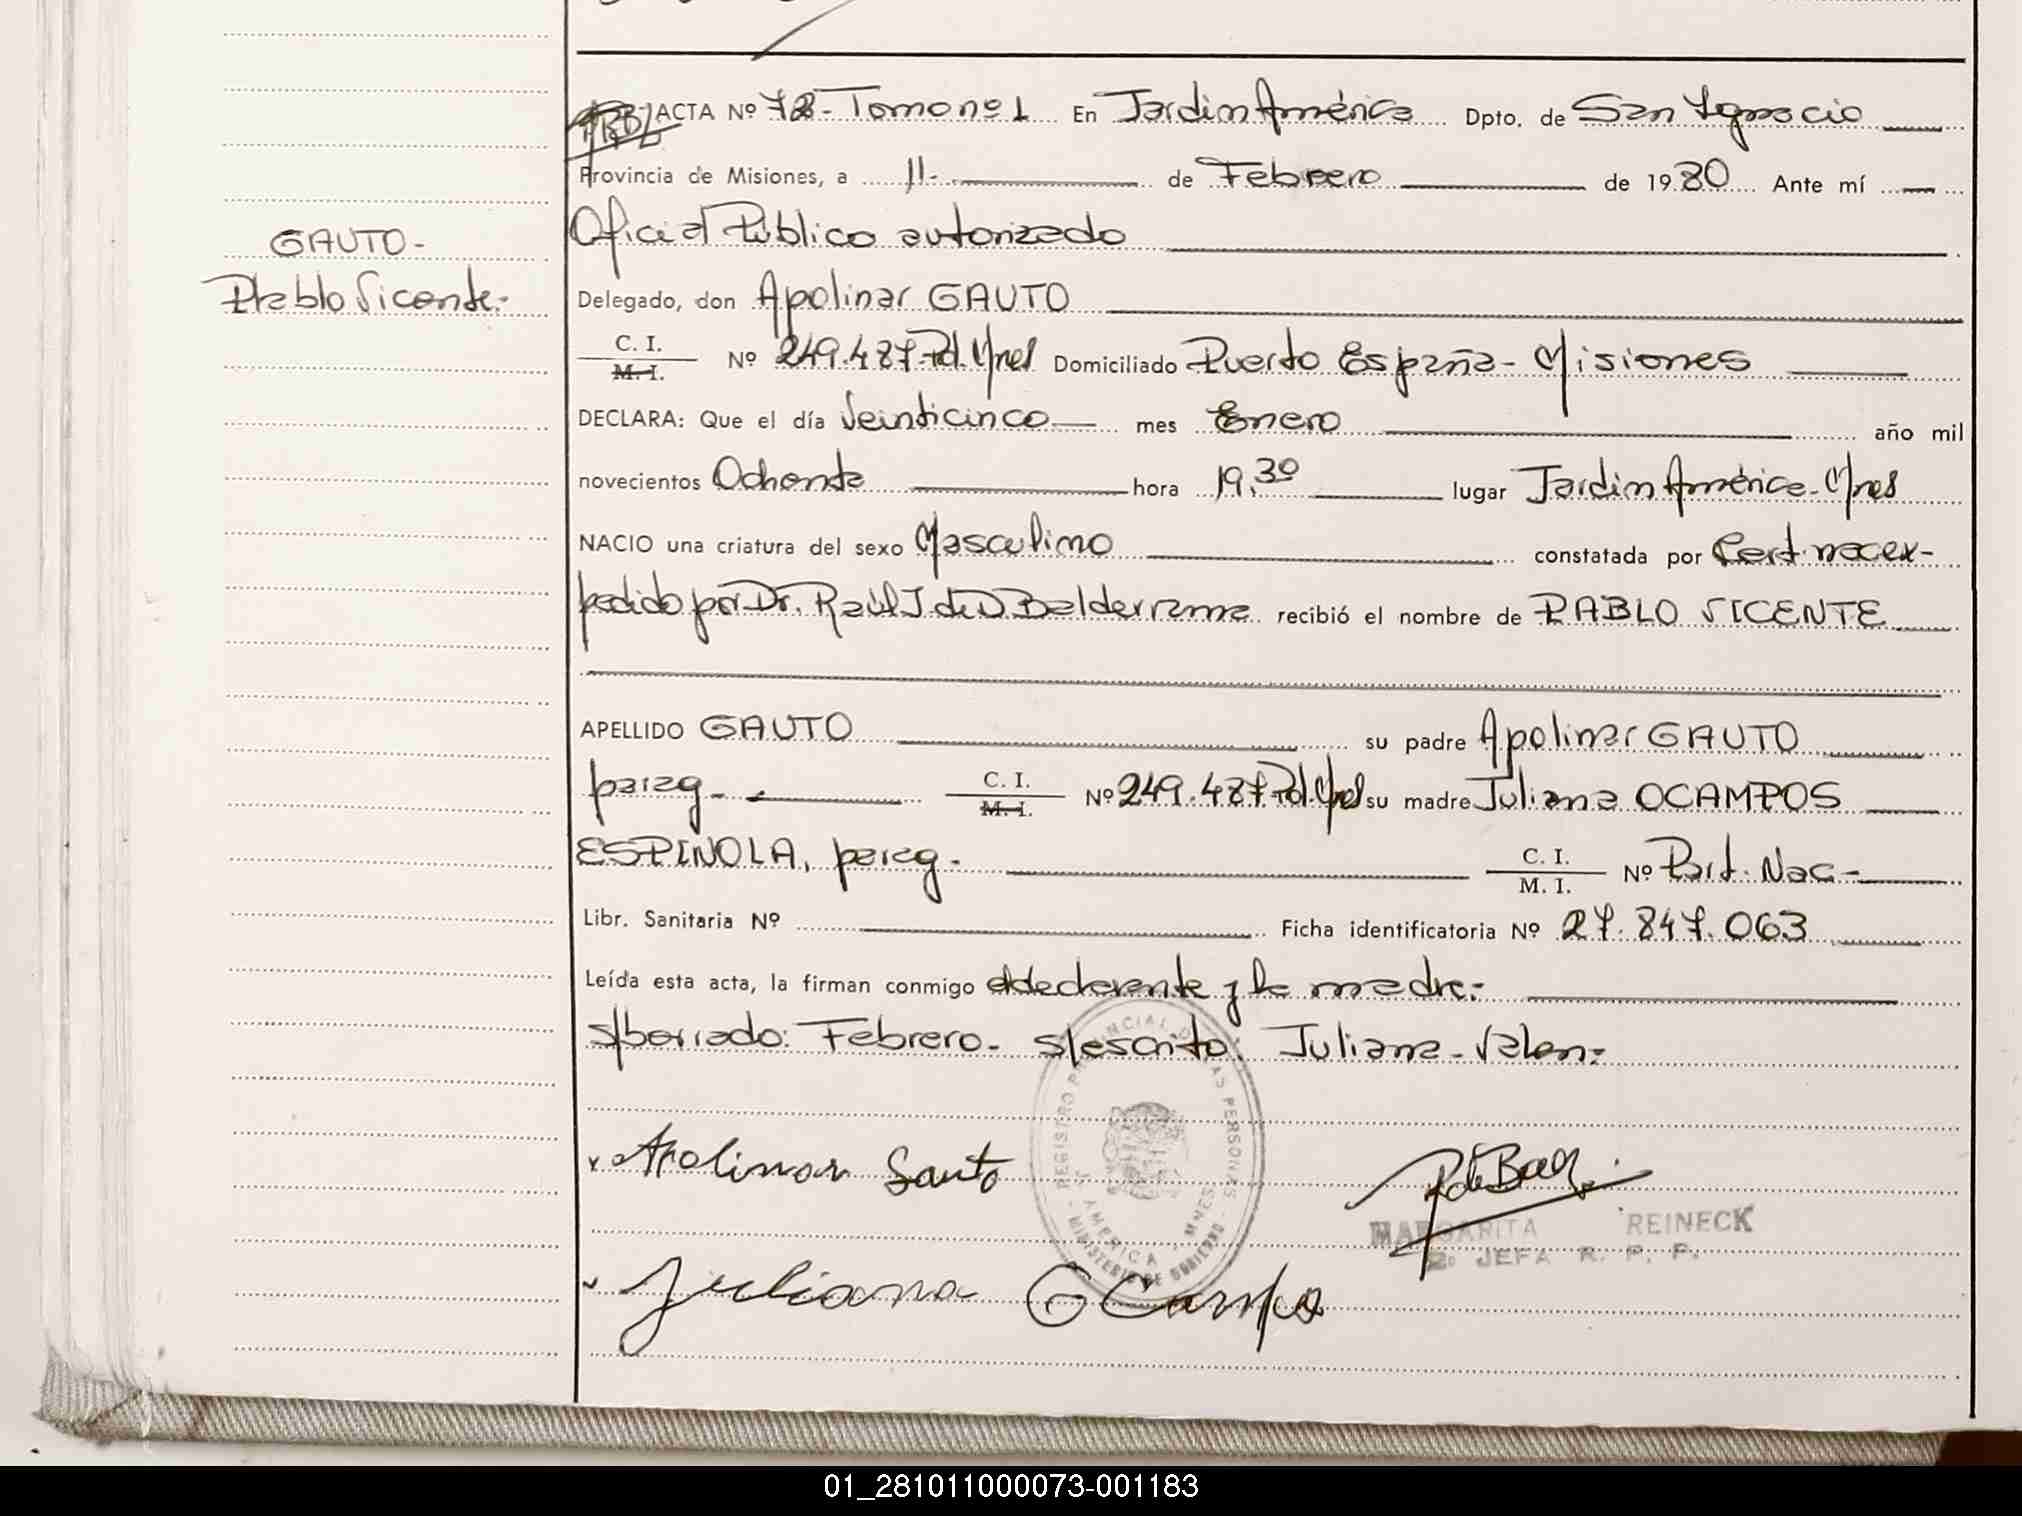 ACTA Nº 78- Tomo nº 1 En Jardin América Dpto. de San Ignacio
Provincia de Misiones, a 11- de Febrero de 1980 Ante mí
Oficial Público autorizado
GAUTO-
Pablo Vicente-
Delegado, don Apolinar GAUTO
C. I. M. I. Nº 249.487-Pol. Mnes Domiciliado Puerto España- Misiones
DECLARA: Que el día Veinticinco mes Enero año mil
novecientos Ochenta hora 19,30 lugar Jardin América- Mnes
NACIO una criatura del sexo Masculino constatada por Cert. nac ex-
pedido por Dr. Raúl J. de D. Balderrama recibió el nombre de PABLO VICENTE
APELLIDO GAUTO su padre Apolinar GAUTO
parag- C. I. M. I. Nº 249.487-Pol. Mnes su madre Juliana OCAMPOS
ESPINOLA, parag- C. I. M. I. Nº Part. Nac-
Libr. Sanitaria Nº Ficha identificatoria Nº 27.847.063
Leída esta acta, la firman conmigo el declarante y la madre:
s/borrado: Febrero- s/escrito: Juliana- Valen:
Apolinar Gauto
REGISTRO PROVINCIAL DE LAS PERSONAS
J. AMERICA - MNES
- MINISTERIO DE GOBIERNO -
MARGARITA REINECK
JEFA R. P. P.
Juliana Ocampo
01_281011000073-001183